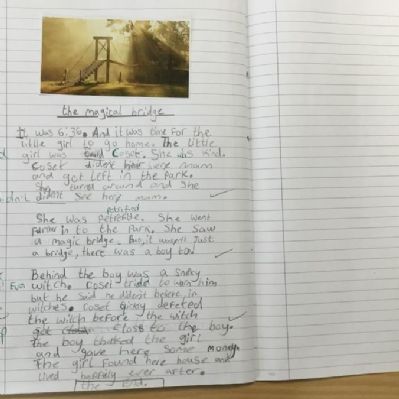 the magical bridge
It was 6:30. And it was time for the
little girl to go home. The little
girl was Coset. She was kind.
Coset dident here were mam
and got left in the park.
She turned around and she
dident see here mam.
petrified
She was petrefide. She went
in to the park. She saw
a magic bridge. But, it wasent Just
a bridge, there was a boy too
Behind the boy was a sneky
witch. Coset tride to worn him
but he said he dident beleve in
witches. Coset defeted
the witch before the witch
got close to the boy.
The boy thanked the girl
and gave here some money.
The girl found here house and
lived happely ever after.
The End.